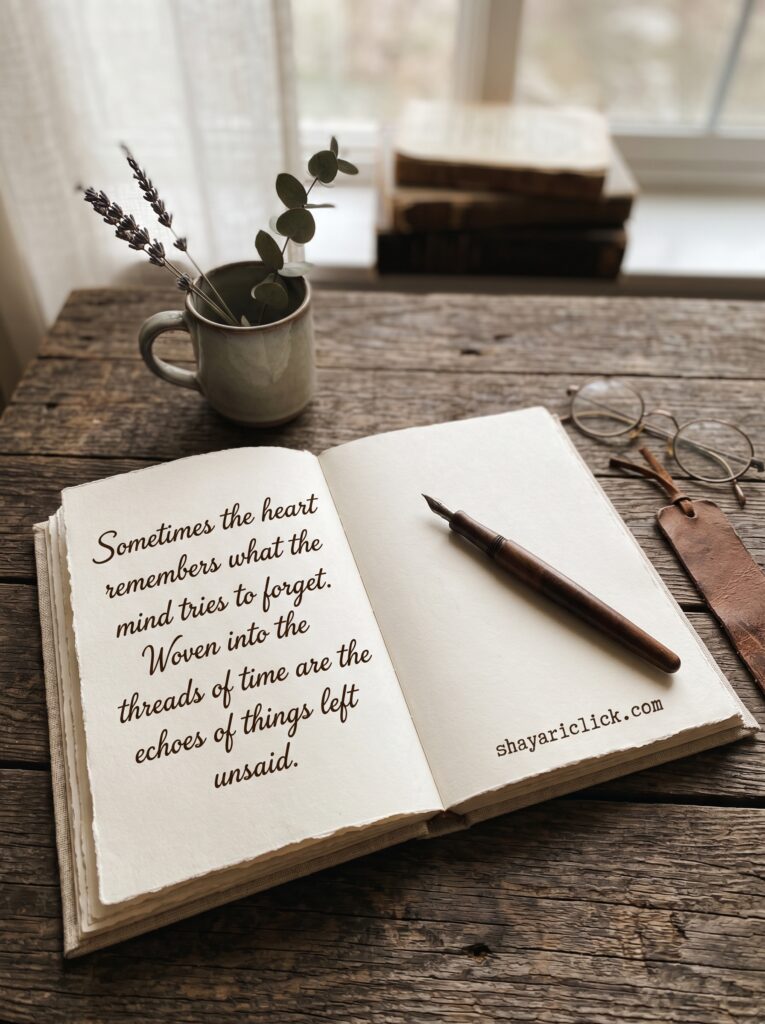 Sometimes the heart
remembers what the
mind tries to forget.
Woven into the
threads of time are the
echoes of things left
unsaid.
shayariclick.com